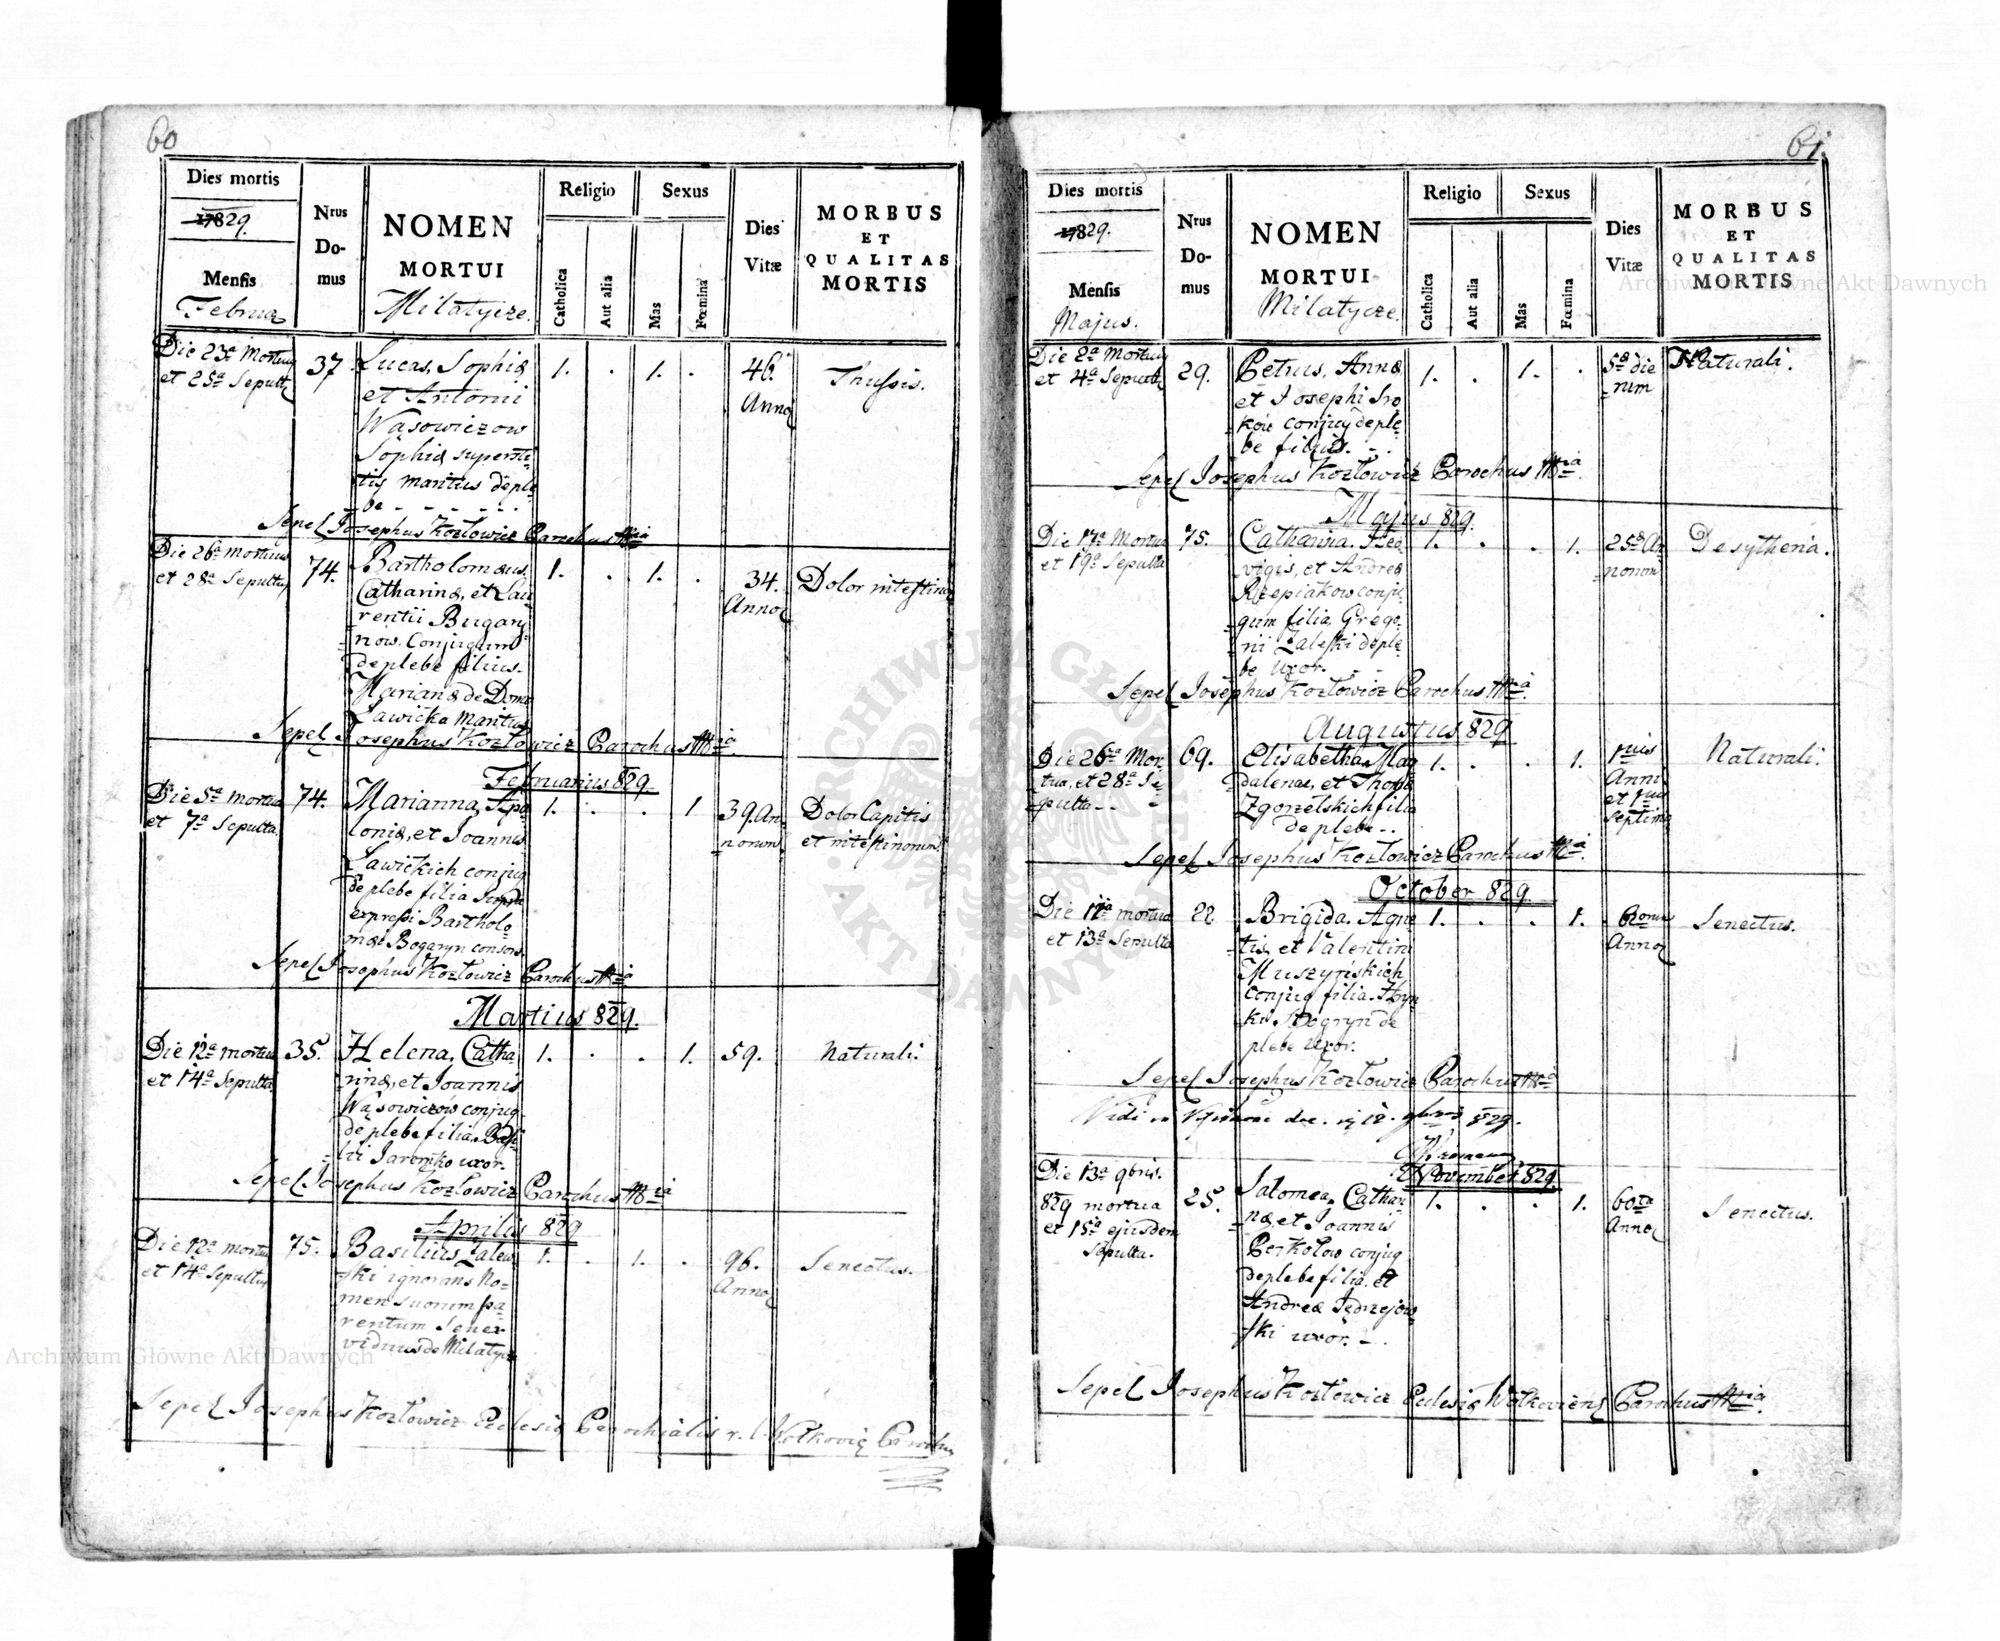 60
Dies mortis
17829.
Mensis
Februa
Nrus
Do-
mus
NOMEN
MORTUI
Milatycze.
Religio
Catholica
Aut alia
Sexus
Mas
Fœmina
Dies
Vitæ
MORBUS
ET
QUALITAS
MORTIS
Die 23a Mortuus
et 25a Sepultus
37
Lucas, Sophiæ
et Antonii
Wąsowiczow
Sophiæ supersti-
tis maritus deple
be - - - - - -
1. . 1. .
46.
Anno
Thussis.
Sepel Josephus Kozłowicz Parochus Mria
Die 26a mortuus
et 28a Sepultus
74.
Bartholomæus,
Catharinæ, et Lau
rentii Bugary
now. Conjugum
de plebe filius.
Marianæ de Domo
Ławicka Maritus
1. . 1. .
34.
Anno
Dolor intestino
Sepel Josephus Kozłowicz Parochus Mria
Februarius 829.
Die 5a mortua
et 7a Sepulta
74.
Marianna, Apo
loniæ, et Joannis
Ławickich conjug
de plebe filia
expressi Bartholo
mæi Bogaryn consors.
1. . . 1
39. An
norum
Dolor Capitis
et intestinorum
Sepel Josephus Kozłowicz Parochus Mria
Martius 829.
Die 12a mortua
et 14a Sepulta
35.
Helena, Catha
rinæ, et Joannis
Wąsowiczów conjug
de plebe filia Basi
lii Jaremko uxor.
1. . . 1.
59.
Naturali.
Sepel Josephus Kozłowicz Parochus Mria
Aprilis 829
Die 12a mortuus
et 14a Sepultus
75.
Basilius Zalew
ski ignorans No-
men suorum pa-
rentum Senex
viduus de Milatycze
1. . 1. .
96.
Anno
Senectus.
Sepel Josephus Kozłowicz Eclesiæ Parochialis r. l. Wołkovię Parochus
61.
Dies mortis
17829.
Mensis
Majus.
Nrus
Do-
mus
NOMEN
MORTUI
Milatycze.
Religio
Catholica
Aut alia
Sexus
Mas
Fœmina
Dies
Vitæ
MORBUS
ET
QUALITAS
MORTIS
Die 2a Mortuus
et 4a Sepult
29.
Petrus, Annæ
et Josephi Sro
ków conjug deple
be filius. - .
1. . 1. .
5a die
rum
Naturali.
Sepel Josephus Kozłowicz Parochus Mria.
Majus 829.
Die 17a Mortua
et 19a Sepulta
75.
Catharina. Hed
vigis, et Andreæ
Rzepiakow conju
gum filia, Grego
rii Zaleski deple
be uxor.
1. . . 1.
25a An
norum
Desytheria.
Sepel Josephus Kozłowicz Parochus Mria.
Augustus 829
Die 26a Mor
tua, et 28a Se
pulta - -
69.
Elisabetha, Mag
dalenae, et Thoma
Zgorzelskich filia
de plebe - .
1. . . 1.
Anni
et
septima
Naturali.
Sepel Josephus Kozłowicz Parochus Mria.
October 829.
Die 11a mortua
et 13a Sepulta
22
Brigida. Agne
tis, et Valentini
Muszyńskich
conjug filia. Hryn
ka Bogryn de
plebe uxor.
1. . . 1.
Anno
Senectus.
Sepel Josephus Kozłowicz Parochus Mria
Vidi in 829.
November 829.
Die 13a 9bris.
829 mortua
et 15a ejusdem
Sepulta.
25.
Salomea, Cathari
næ, et Joannis
Perkołow conjug
de plebe filia. et
Andreæ Jędrzejow
ski uxor. - .
1. . . 1.
60ta
Anno
Senectus.
Sepel Josephus Kozłowicz Eclesiæ Wołkoviens Parochus Mria.
Archiwum Główne Akt Dawnych
Archiwum Główne Akt Dawnych
ARCHIWUM GŁÓWNE AKT DAWNYCH